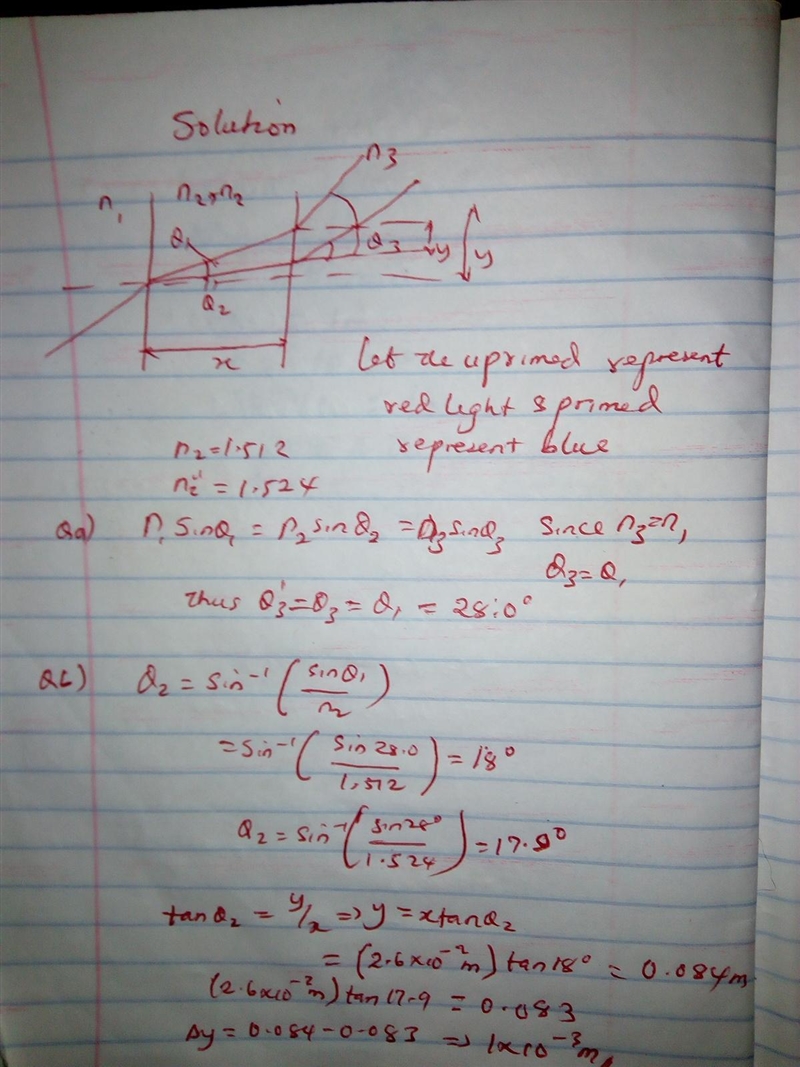 Solution
n3
n1 n2, n2
Q1
Q3 y y
Q2
x
Let the uprimed represent
red light & primed
represent blue
n2 = 1.512
n2' = 1.524
Qa) n1 sinQ1 = n2 sinQ2 = n3 sinQ3 Since n3 = n1
Q3 = Q1
Thus Q3' = Q3 = Q1 = 28.0°
Qb) Q2 = Sin⁻¹ (sinQ1/n2)
= Sin⁻¹ (Sin 28.0/1.512) = 18°
Q2 = Sin⁻¹ (sin28°/1.524) = 17.9°
tanQ2 = y/x => y = x tanQ2
= (2.6x10⁻²m) tan 18° = 0.084m
(2.6x10⁻²m) tan 17.9 = 0.083
Δy = 0.084 - 0.083 => 1x10⁻³m